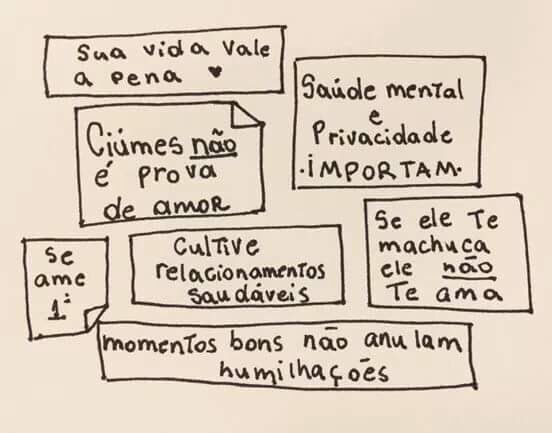 Sua vida vale
a pena ♥
Saúde mental
e
Privacidade
.IMPORTAM.
Ciúmes não
é prova
de amor
Se ele Te
machuca
ele não
Te ama
Se
ame
1º
Cultive
relacionamentos
saudáveis
momentos bons não anulam
humilhações